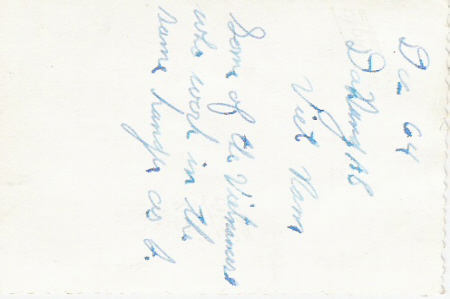 Dec 64
DaNang AB
Viet Nam
Some of the Vietnamese
who work in the
same hangar as I.